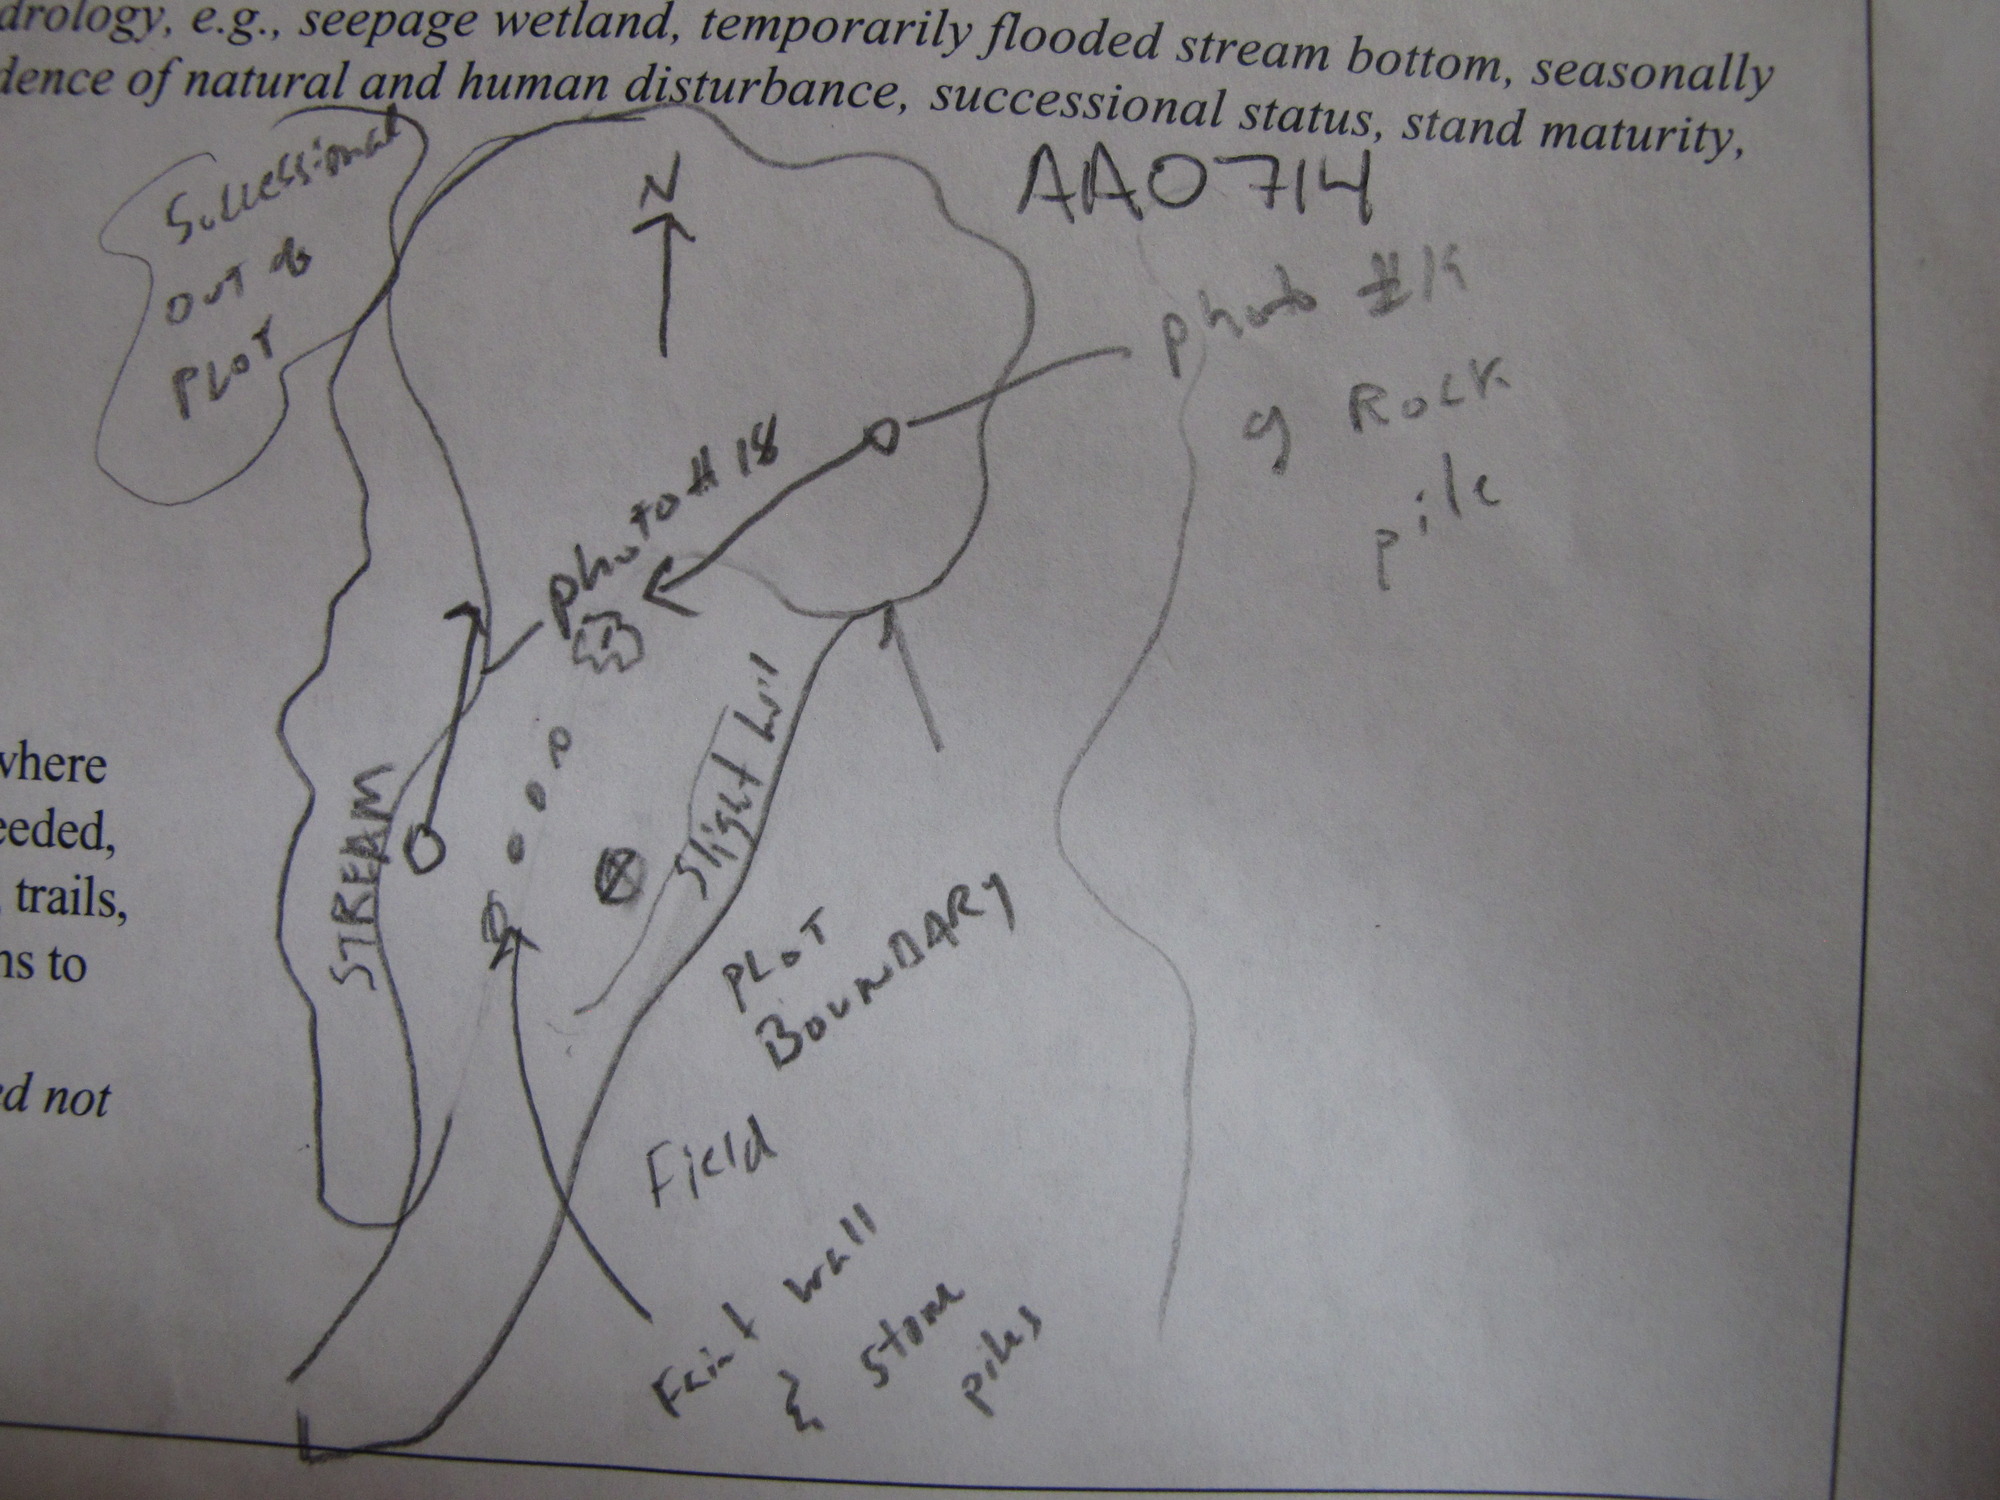 drology, e.g., seepage wetland, temporarily flooded stream bottom, seasonally
dence of natural and human disturbance, successional status, stand maturity,
AA0714
N
Successional
OUT of
PLOT
photo #19
of ROCK
pile
photo # 18
Slight hill
STREAM
PLOT
BOUNDARY
Field
Faint wall
& stone
piles
where
eeded,
trails,
ns to
ed not